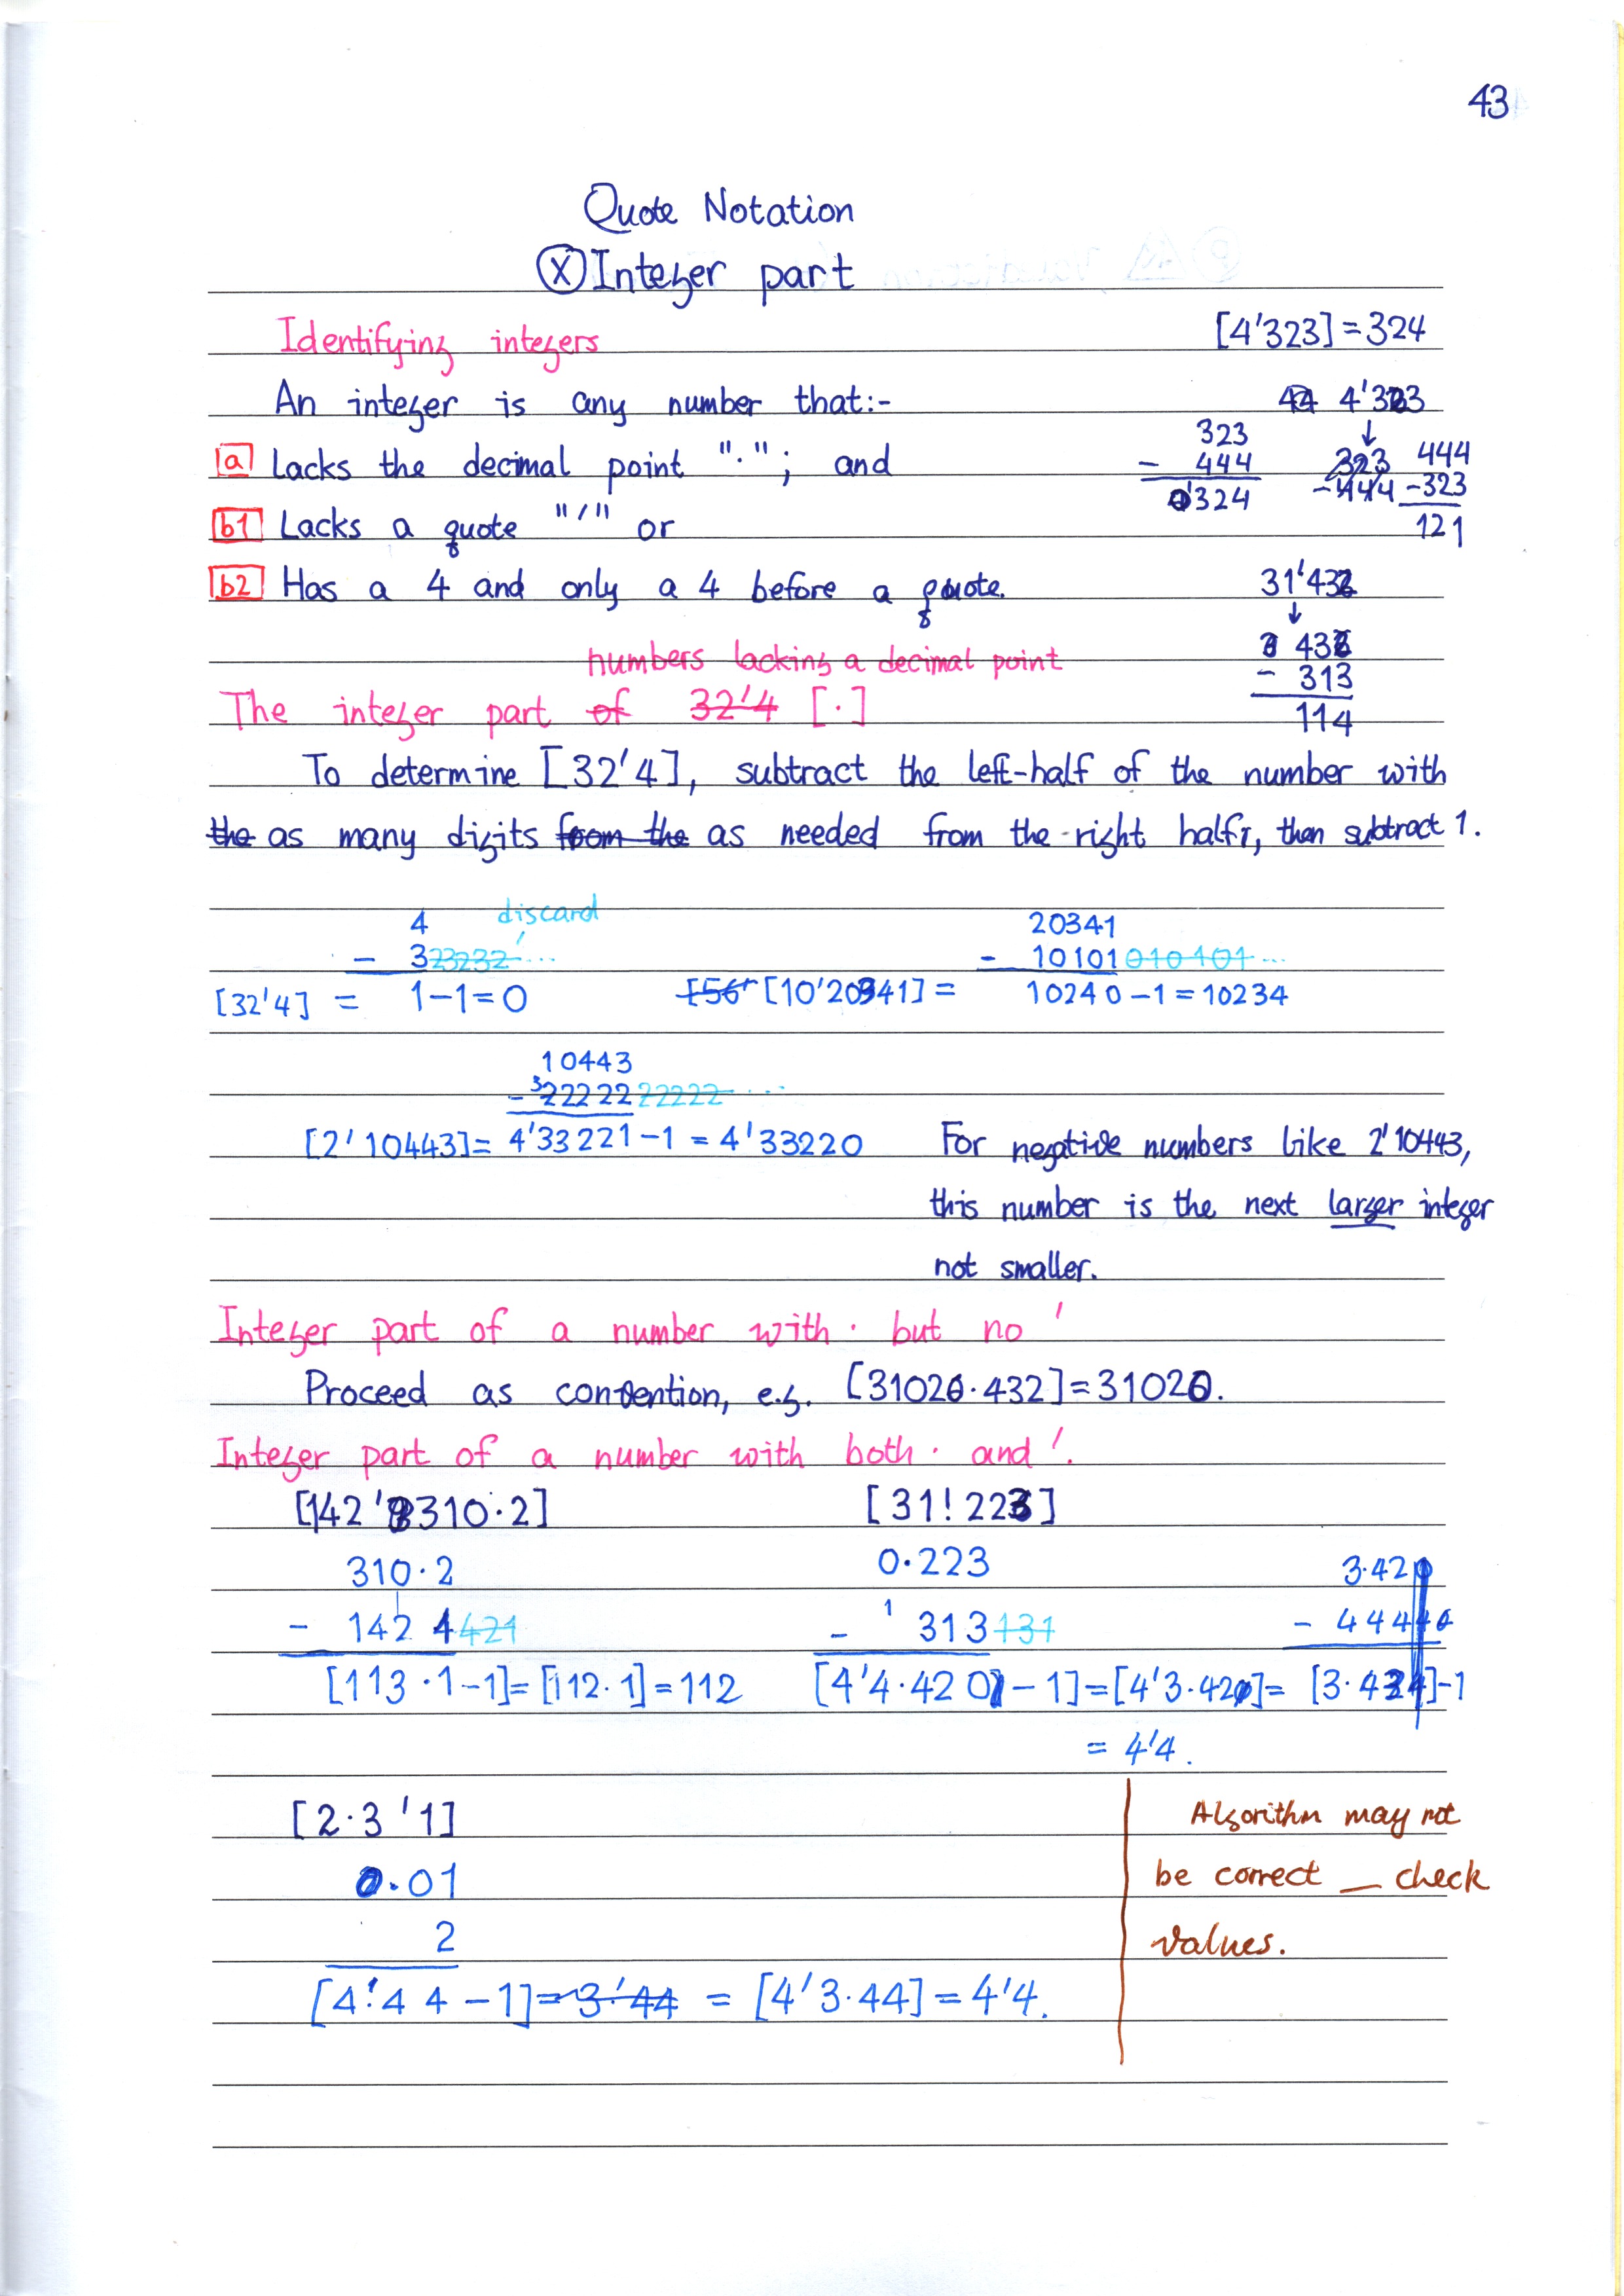 43
Quote Notation
Ⓧ Integer part
Identifying integers
[4'323] = 324
An integer is any number that:-
4'323
↓
a Lacks the decimal point "."; and
323
- 444
'324
444
-323
121
b1 Lacks a quote "'" or
b2 Has a 4 and only a 4 before a quote.
31'432
↓
432
- 313
114
numbers lacking a decimal point
The integer part of 32'4 [.]
To determine [32'4], subtract the left-half of the number with
the as many digits from the as needed from the right half, then subtract 1.
4 discard
- 323232 ...
[32'4] = 1-1=0
20341
- 10101010101 ...
[56' [10'20341] = 10240-1 = 10234
10443
- 2222222222 ...
[2'10443] = 4'33221-1 = 4'33220
For negative numbers like 2'10443,
this number is the next larger integer
not smaller.
Integer part of a number with . but no '
Proceed as convention, e.g. [31020.432] = 31020.
Integer part of a number with both . and '.
[142'310.2]
310.2
- 142 4421
[113.1-1] = [112.1] = 112
[31!223]
0.223
- 313131
[4'4.420-1] = [4'3.420] = [3.424]-1
= 4'4.
3.420
- 44440
[2.3'1]
0.01
2
[4!44-1] = 3!44 = [4'3.44] = 4'4.
Algorithm may not
be correct — check
values.